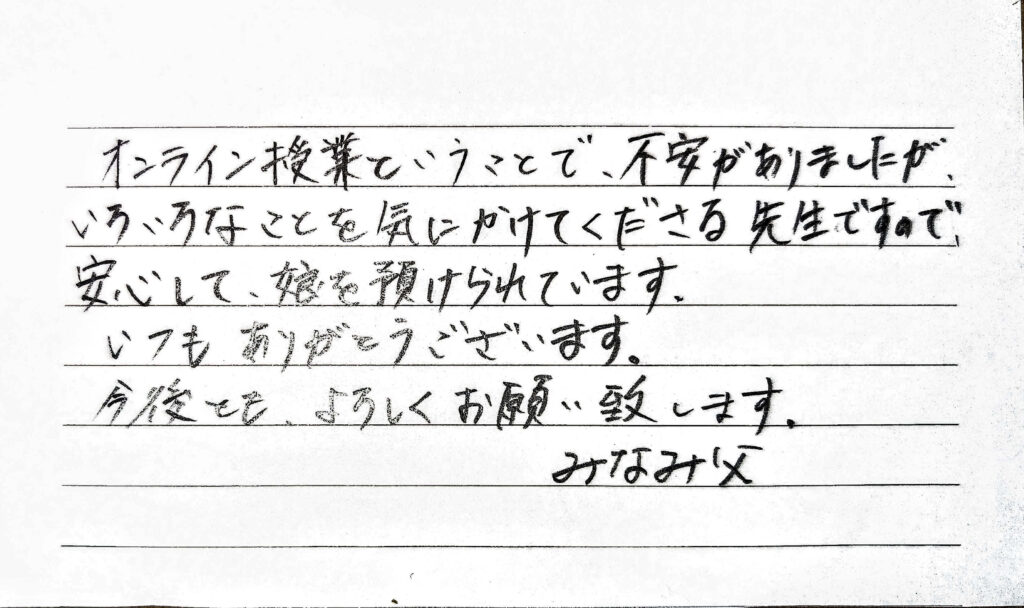 オンライン授業ということで、不安がありましたが、
いろいろなことを気にかけてくださる先生ですので、
安心して、娘を預けられています。
いつもありがとうございます。
今後とも、よろしくお願い致します。
みなみ父